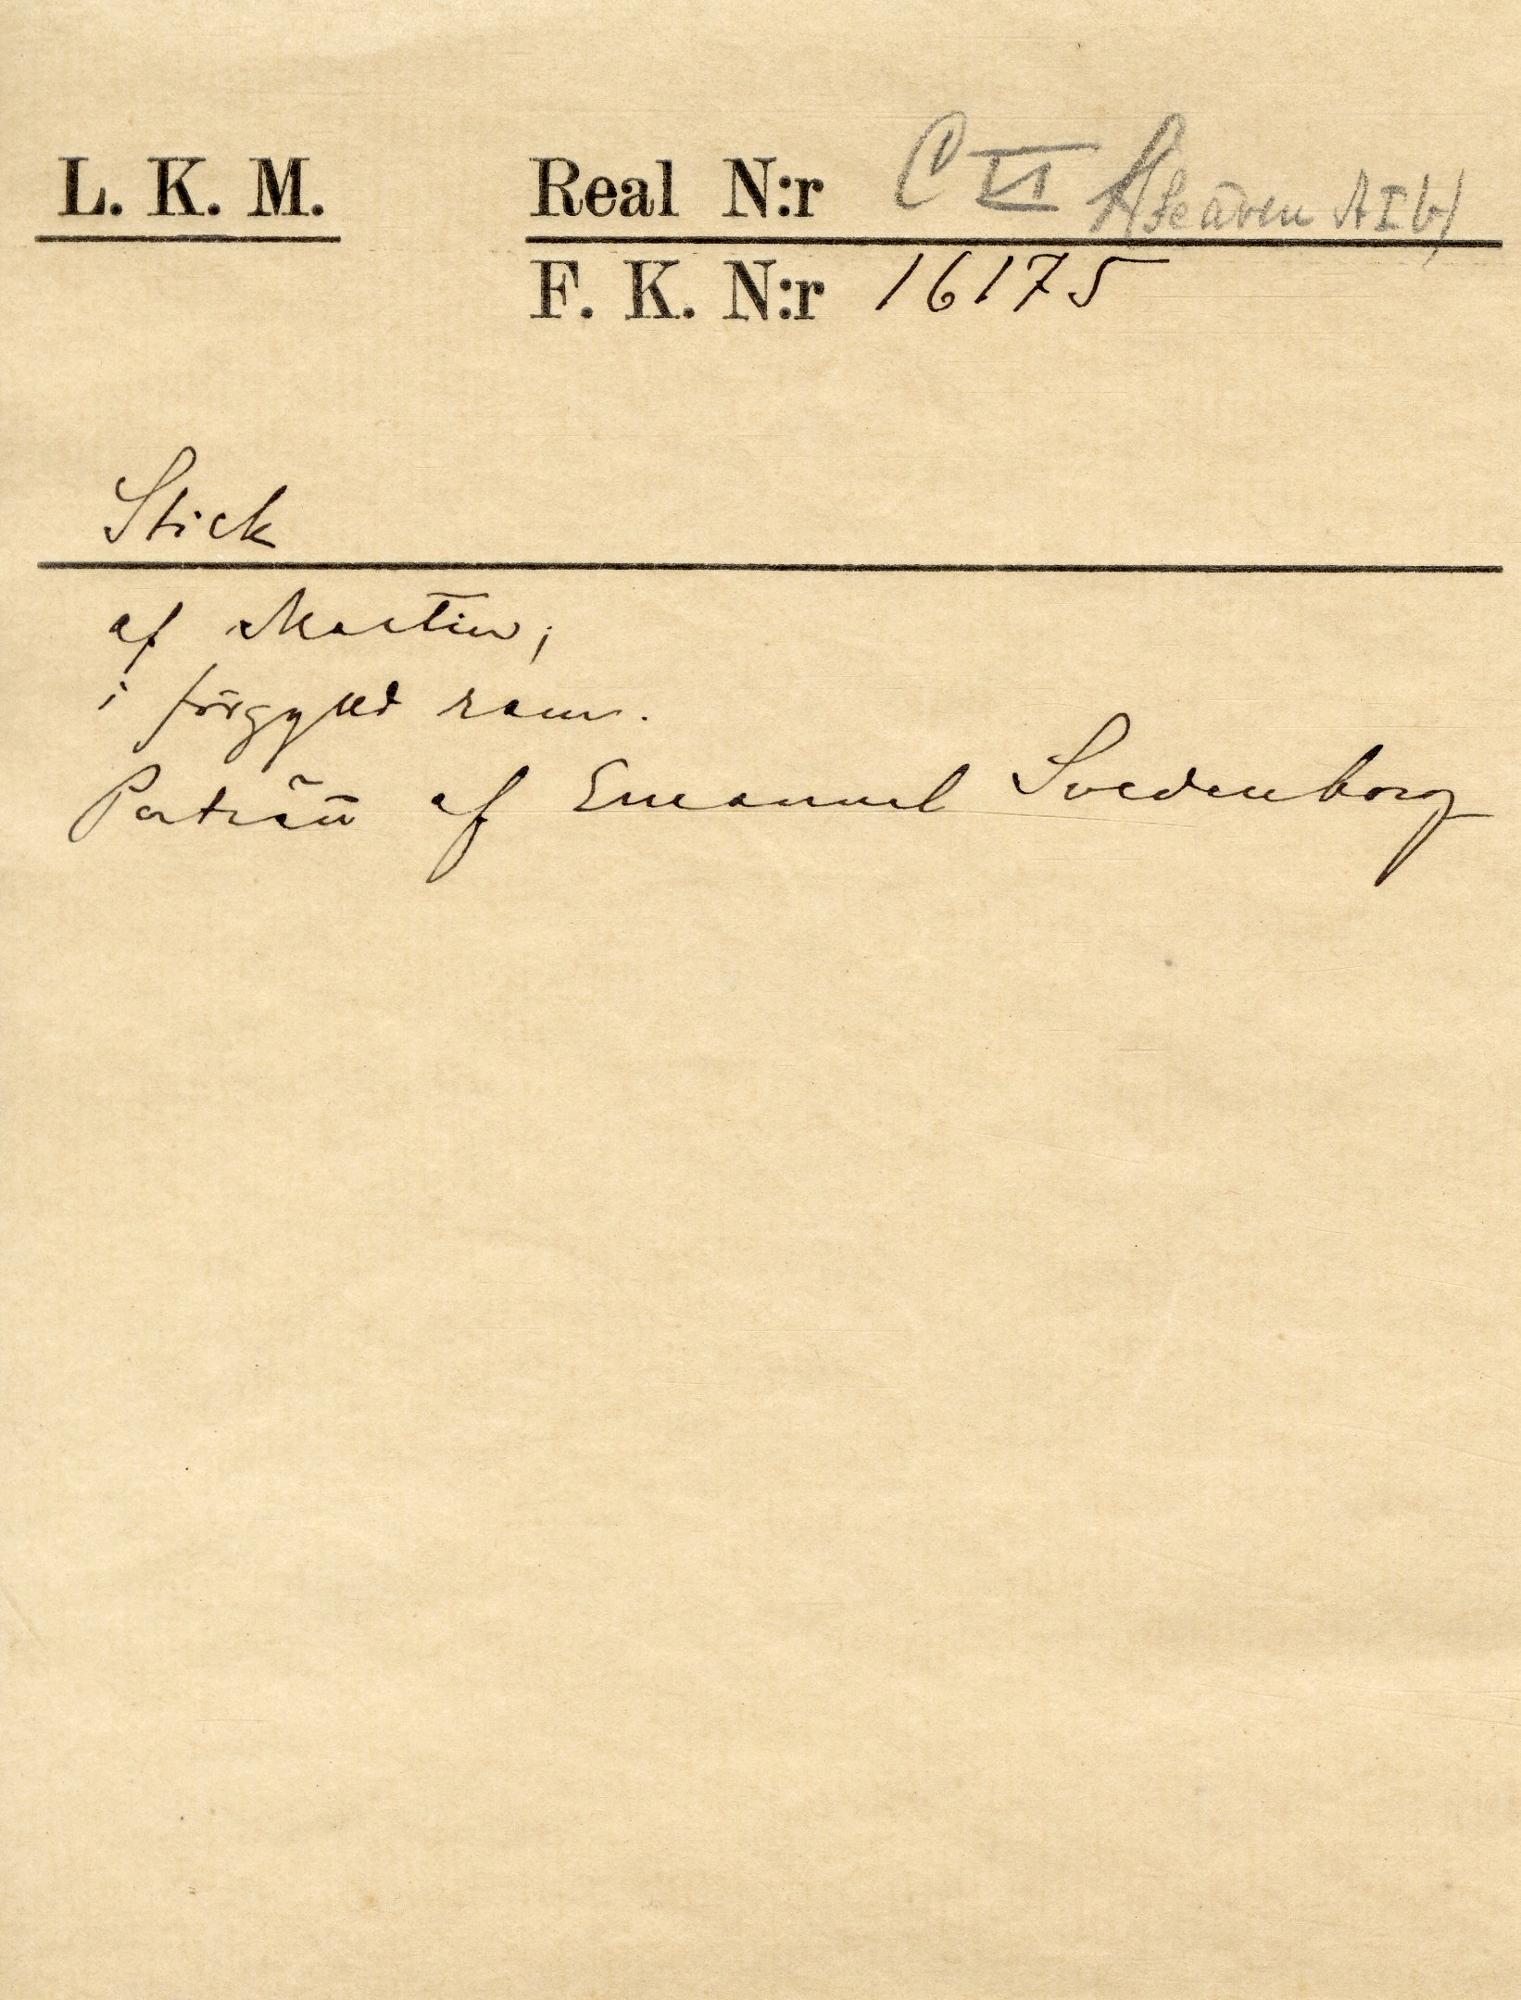 L. K. M. Real N:r C VI A (Se även A I b)
F. K. N:r 16175
Stick
af Martin;
i förgylld ram.
Porträtt af Emanuel Svedenborg